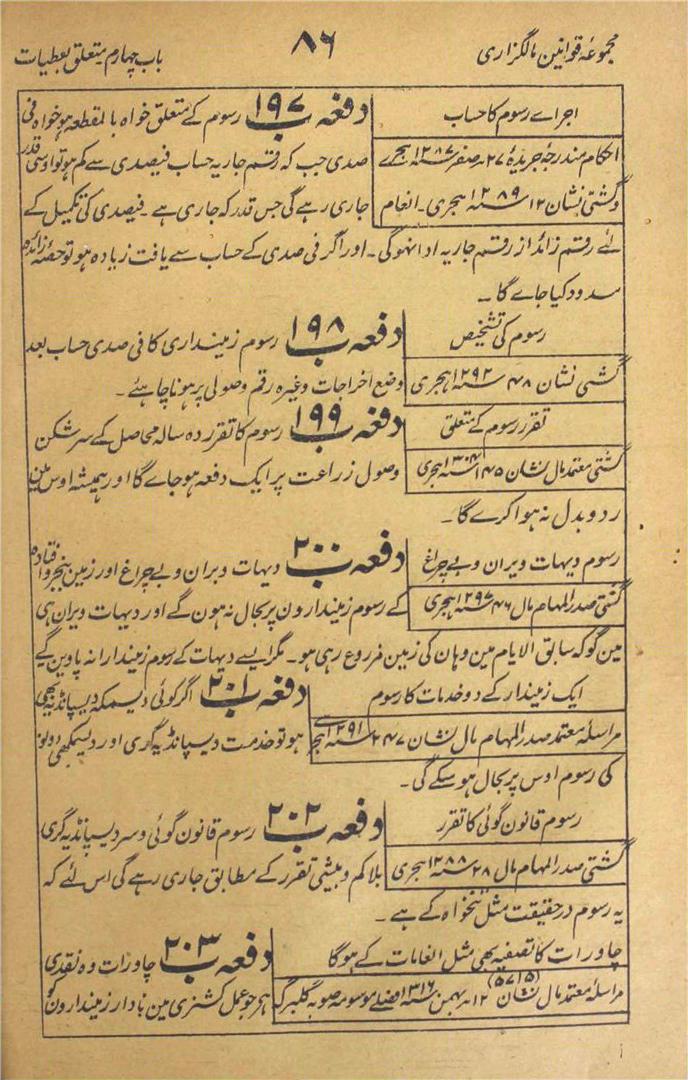 مجموعۂ قوانین مالگزاری
۸۶
باب چہارم متعلق بعطیات
اجراے رسوم کا حساب
احکام مندرجۂ جریدۂ ۲۷ صفر ۱۲۸۷ سنہ ہجری
وگشتی نشان ۱۲ ۱۲۸۹ سنہ ہجری۔ انعام
دفعہ ۱۹۷ رسوم کے متعلق خواہ بالمقطعہ ہو خواہ فی
صدی جب کہ رقم جاریہ حساب فیصدی سے کم ہو تو اوسی قدر
جاری رہے گی جس قدر کہ جاری ہے۔ فیصدی کی تکمیل کے
لئے رقم زائد از رقم جاریہ ادا نہوگی۔ اور اگر فی صدی کے حساب سے یافت زیادہ ہو تو حصۂ زائدہ
مسدود کیا جاے گا۔
رسوم کی تشخیص
گشتی نشان ۴۸ ۱۲۹۲ سنہ ہجری
دفعہ ۱۹۸ رسوم زمینداری کا فی صدی حساب بعد
وضع اخراجات وغیرہ رقم وصولی پر ہونا چاہئے۔
تقرر رسوم کے متعلق
گشتی معتمد مال نشان ۱۴۵ ۱۳۰۴ سنہ ہجری
دفعہ ۱۹۹ رسوم کا تقرر دہ سالہ محاصل کے سرشکن
وصول زراعت پر ایک دفعہ ہو جاے گا اور ہمیشہ اوس مین
ردوبدل نہ ہوا کرے گا۔
رسوم دیہات ویران و بے چراغ
گشتی صدرالمہام مال ۴۶ ۱۲۹۷ سنہ ہجری
دفعہ ۲۰۰ دیہات ویران و بے چراغ اور زمین بنجر و افتادہ
کے رسوم زمیندارون پر بحال نہ ہون گے اور دیہات ویران ہی
مین گو کہ سابق الایام مین وہان کی زمین مزروع رہی ہو۔ مگر ایسے دیہات کے رسوم زمیندار انہ پاوین گے
ایک زمیندار کے دو خدمات کا رسوم
مراسلۂ معتمد صدرالمہام مال نشان ۲۴۷ ۱۲۹۱ سنہ ہجری
دفعہ ۲۰۱ اگر کوئی دیسمکہ دیسپانڈیہ بھی
ہو تو خدمت دیسپانڈیہ گری اور دیسمکھی دونو
کی رسوم اوس پر بحال ہو سکے گی۔
رسوم قانون گوئی کا تقرر
گشتی صدرالمہام مال ۲۸ ۱۲۸۸ سنہ ہجری
دفعہ ۲۰۲ رسوم قانون گوئی و سر دیسپانڈیہ گری
بلا کم و بیشی تقرر کے مطابق جاری رہے گی اس لئے کہ
یہ رسوم درحقیقت مثل تنخواہ کے ہے۔
چاورات کا تصفیہ بھی مثل انعامات کے ہوگا
مراسلۂ معتمد مال نشان (۵۷۱۵) ۱۲ بہمن ۱۳۱۶ سنہ فصلی موسومہ صوبہ گلبرگہ
دفعہ ۲۰۳ چاورات وہ نقدی
ہر جو عمل کشنری مین نادار زمیندارون کو